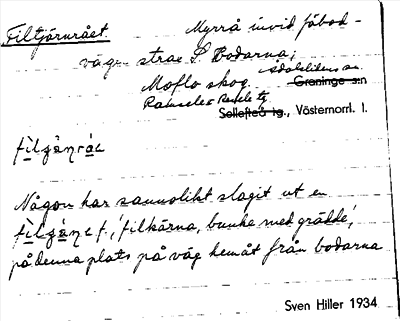 Filtjärnrået. Myrrå invid fäbod-
vägen strax S. Bodarna,
Moflo skog. Ådalslidens sn
Graninge s:n
Ramsele o. Resele tg
Sollefteå tg., Västernorrl. l.
Någon har sannolikt slagit ut en
'filkärna, bunke med grädde',
på denna plats på väg hemåt från bodarna
Sven Hiller 1934